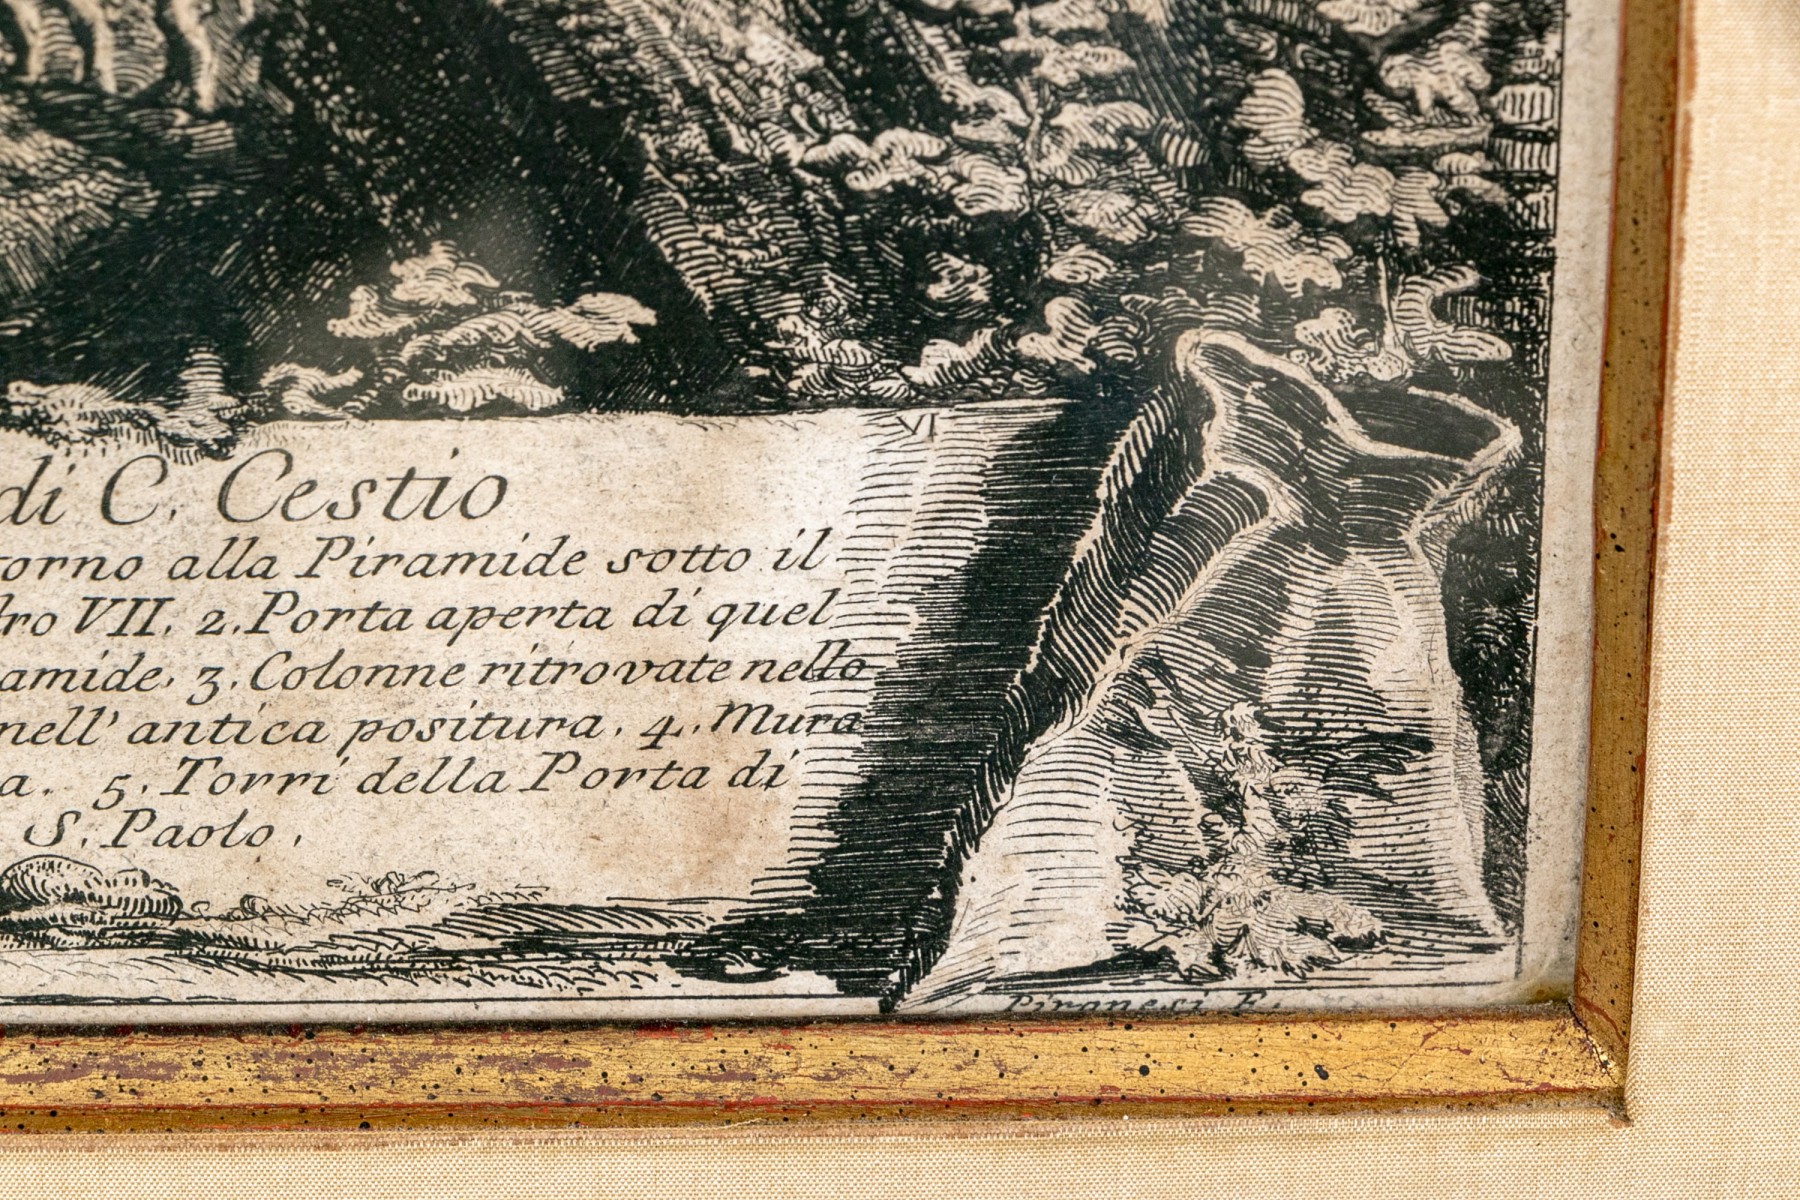 VI
di C. Cestio
torno alla Piramide sotto il
dro VII. 2. Porta aperta di quel
amide. 3. Colonne ritrovate nello
nell' antica positura. 4. Mura
a. 5. Torri della Porta di
S. Paolo.
Piranesi F.